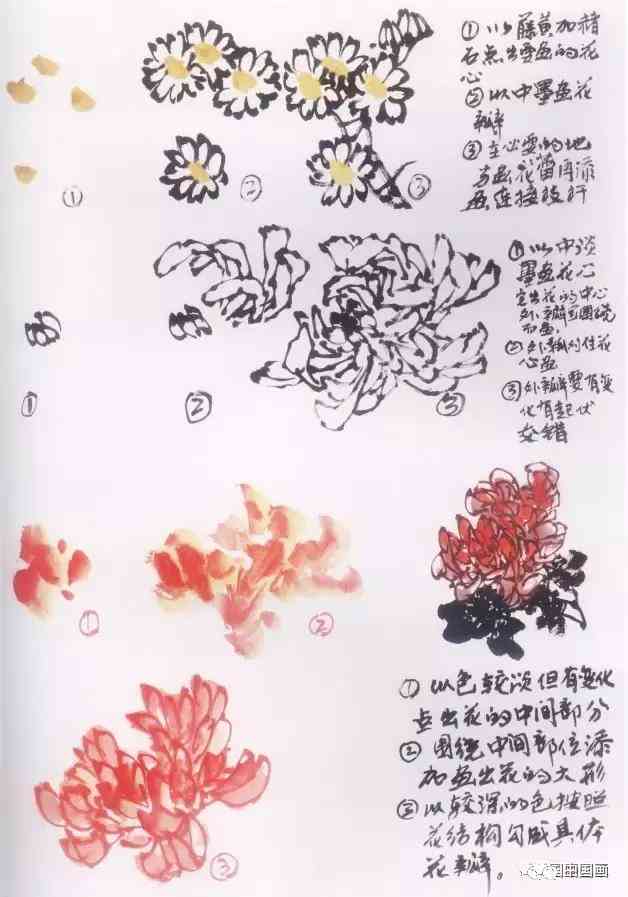 ① 以藤黄加赭
石点出要画的花
心
② 以中墨画花
瓣
③ 在必要的地
方画花蕾再添
画连接枝杆
① ② ③
① 以中淡
墨画花心
定出花的中心
外瓣宜围绕
而画.
② 外瓣对住花
心画
③ 外瓣要有变
化有起伏
交错
① ② ③
① ②
① 以色较淡但有变化
点出花的中间部分
② 围绕中间部位添
加画出花的大形
③ 以较深的色按照
花结构勾成具体
花瓣。
③
国画